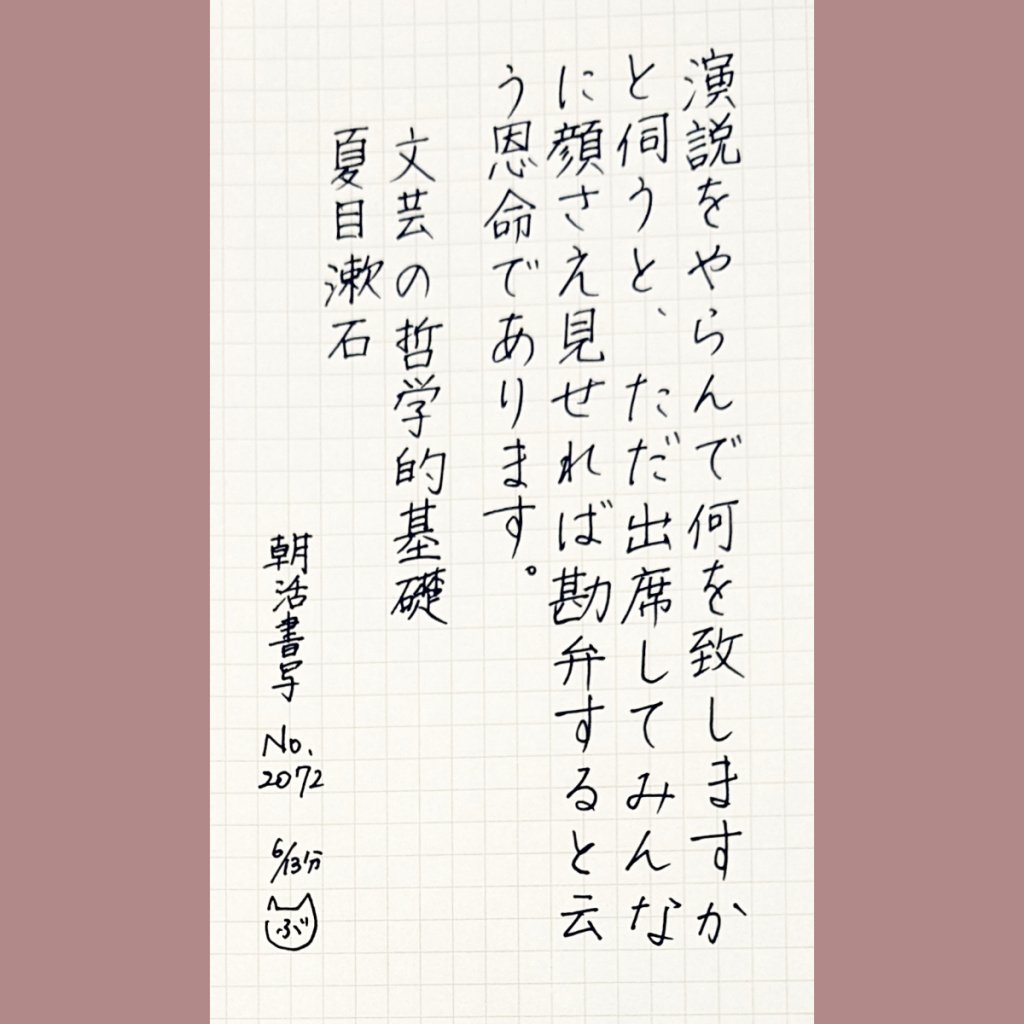 演説をやらんで何を致しますか
と伺うと、ただ出席してみんな
に顔さえ見せれば勘弁すると云
う恩命であります。
文芸の哲学的基礎
夏目漱石
朝活書写
No.
2072
6/13分
ぶ